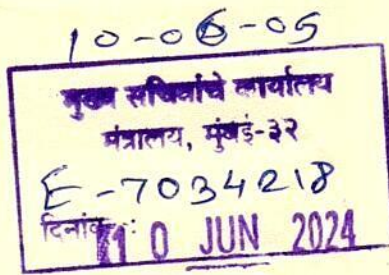 10-06-05
मुख्य सचिवांचे कार्यालय
मंत्रालय, मुंबई-३२
E-7034218
दिनांक :
10 JUN 2024